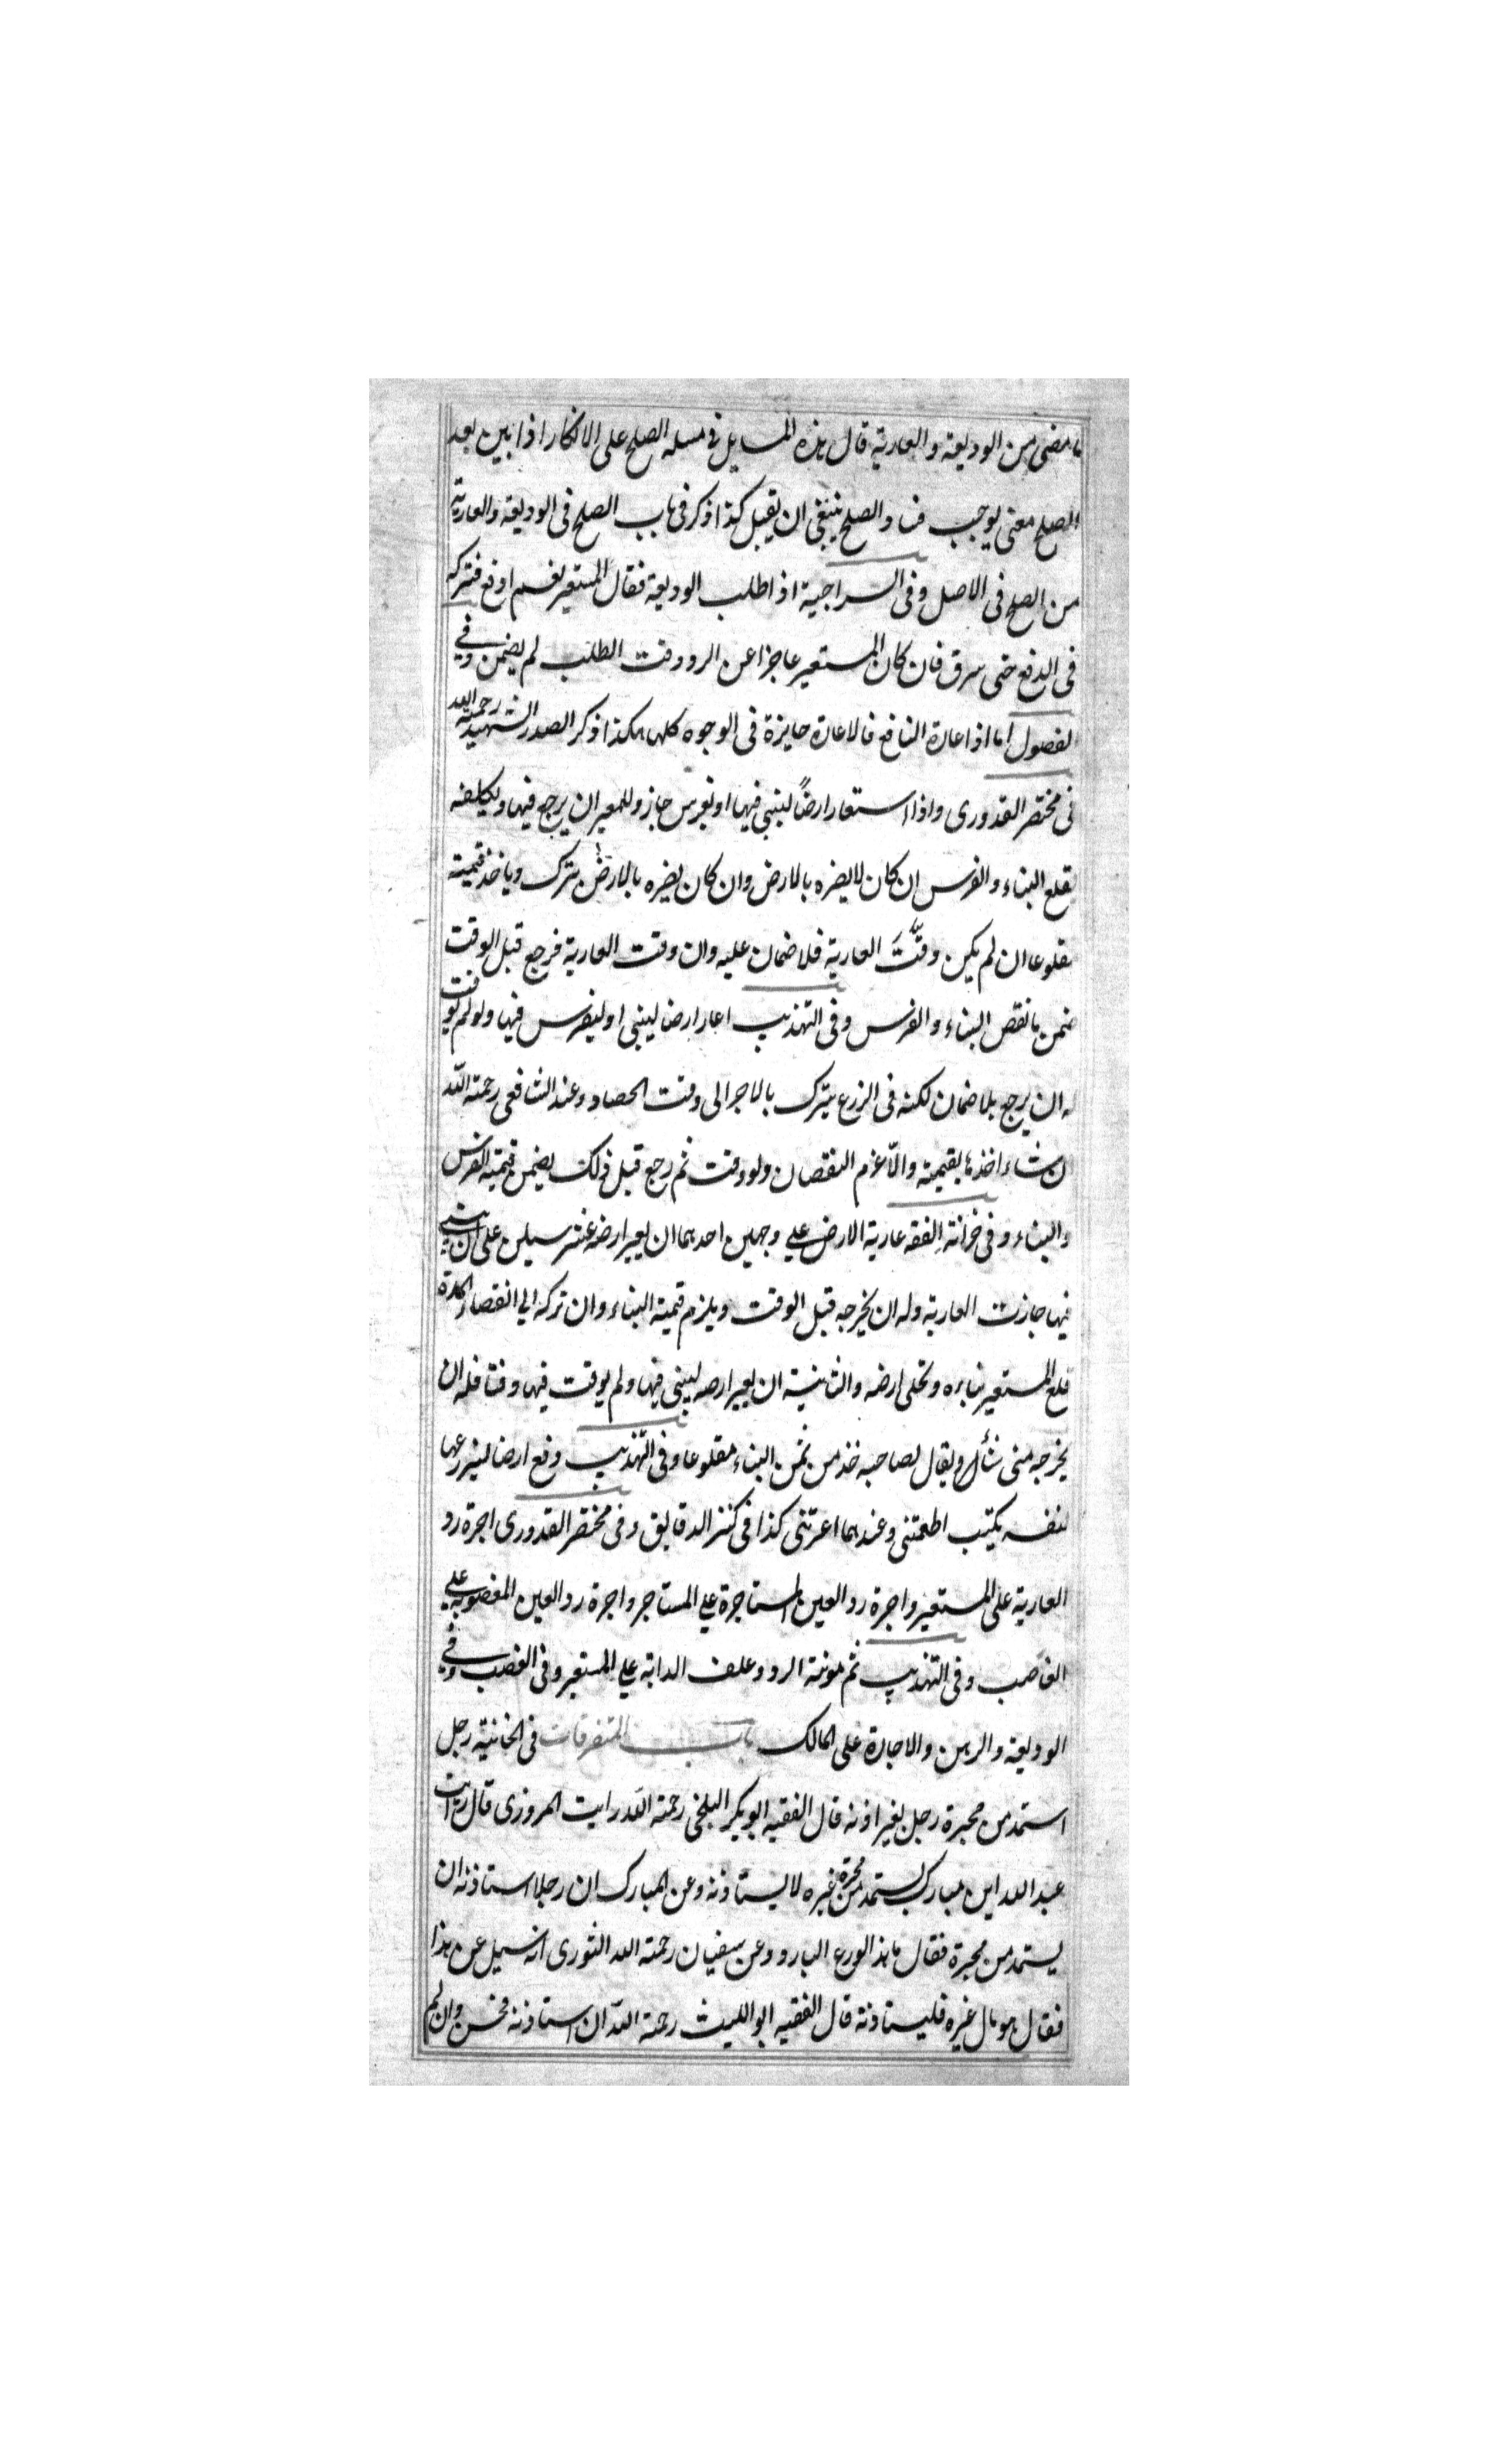 ما مضى من الوديعة والعارية قال هذه المسايل فى مسله الصلح على الانكار اذا بين بعد
الصلح معنى يوجب فساد الصلح ينبغى ان يقبل كذا ذكر فى باب الصلح فى الوديعة والعارية
من الصلح فى الاصل وفى السراجية اذا طلب الوديعة فقال المستعير نعم ادفع فتركه
فى الدفع حتى سرق فان كان المستعير عاجزا عن الرد وقت الطلب لم يضمن وفى
لفصول اما اذا عادة النافع فالاعارة جايزة فى الوجوه كلها هكذا ذكر الصدر الشهيد رحمة الله
فى مختصر القدورى واذا استعار ارضاً ليبنى فيها او يغرس جاز وللمعير ان يرجع فيها ويكلفه
بقلع البناء والغرس ان كان لا يضره بالارض وان كان يضره بالارض يترك وياخذ قيمته
مقلوعا ان لم يكن وقّتَ العارية فلا ضمان عليه وان وقت العارية فرجع قبل الوقت
ضمن ما نقص البناء والغرس وفى التهذيب اعار ارضا ليبنى او ليغرس فيها ولو لم يوقت
له ان يرجع بلا ضمان لكنه فى الزرع يترك بالاجر الى وقت الحصاد وعند الشافعى رحمة الله
ان شاء اخذها بقيمته والا غرم النقصان ولو وقت ثم رجع قبل ذلك يضمن قيمته الغرس
والبناء وفى خزانة الفقه عارية الارض على وجهين احدهما ان يعير ارضه عشر سنين على ان يبنى
فيها جازت العارية وله ان يخرجه قبل الوقت ويلزم قيمة البناء وان تركه الى انقضاء المدة
قلع المستعير بناءه وتخلى ارضه والثانية ان يعير ارضه ليبنى فيها ولم يوقت فيها وقتا فله ان
يخرجه متى شأ ويقال لصاحبه خذ من ثمن البناء مقلوعا وفى التهذيب دفع ارضا ليزرعها
لنفسه يكتب اطعمتنى وعندهما اعرتنى كذا فى كنز الدقايق وفى مختصر القدورى اجرة رد
العارية على المستعير واجرة رد العين المستاجرة على المستاجر واجرة رد العين المغصوبة على
الغاصب وفى التهذيب ثم مونة الرد وعلف الدابة على المستعير وفى الغصب وفى
الوديعة والرهن والاجارة على المالك باب المتفرقات فى الخانية رجل
استمد من محبرة رجل بغير اذنه قال الفقيه ابو بكر البلخى رحمة الله رايت المروزى قال رايت
عبد الله ابن مبارك يستمد من محبرة غيره لا يستاذنه وعن المبارك ان رجلا استاذنه ان
يستمد من محبرة فقال ما هذا الورع البارد وعن سفيان رحمة الله الثورى انه سيل عن هذا
فقال هو مال غيره فليستاذنه قال الفقيه ابو الليث رحمة الله ان استاذنه فحسن وان لم